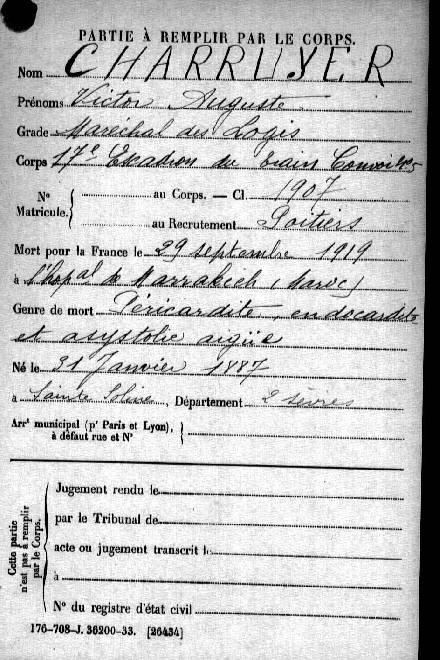 PARTIE À REMPLIR PAR LE CORPS.
Nom CHARRUYER
Prénoms Victor Auguste
Grade Maréchal des Logis
Corps 17e Escadron du train Convoi
Nº au Corps. — Cl. 1907
Matricule. au Recrutement Poitiers
Mort pour la France le 29 septembre 1919
à l'hopal de Marrakech (Maroc)
Genre de mort Péricardite, endocardite
et asystolie aigüe
Né le 31 Janvier 1887
à Sainte Soline, Département 2 sèvres
Arrt municipal (pr Paris et Lyon),
à défaut rue et Nº
Cette partie
n'est pas à remplir
par le Corps.
Jugement rendu le
par le Tribunal de
acte ou jugement transcrit le
à
Nº du registre d'état civil
176-708-J. 36200-33. [26434]